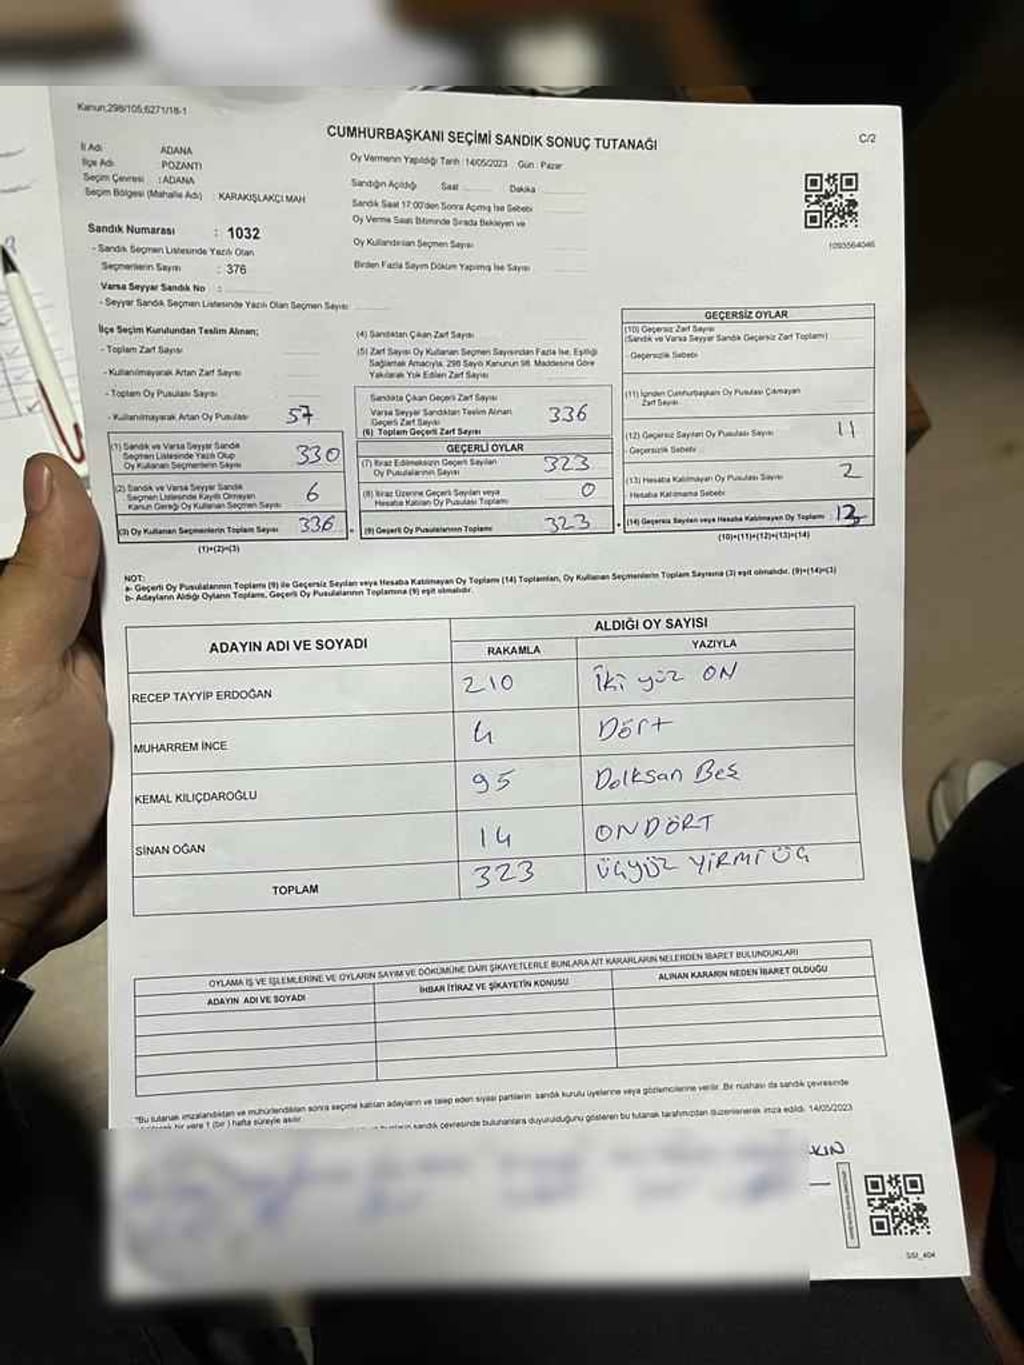 Kanun;298/105;6271/18-1
CUMHURBAŞKANI SEÇİMİ SANDIK SONUÇ TUTANAĞI
C/2
İl Adı ADANA
İlçe Adı : POZANTI
Seçim Çevresi : ADANA
Seçim Bölgesi (Mahalle Adı) : KARAKIŞLAKÇI MAH
Oy Vermenin Yapıldığı Tarih :14/05/2023 Gün : Pazar
Sandığın Açıldığı Saat Dakika
Sandık Saat 17:00'den Sonra Açımış İse Sebebi
Oy Verme Saati Bitiminde Sırada Bekleyen ve
Oy Kullandırılan Seçmen Sayısı
Birden Fazla Sayım Döküm Yapılmış İse Sayısı
1093564046
Sandık Numarası : 1032
- Sandık Seçmen Listesinde Yazılı Olan
Seçmenlerin Sayısı : 376
Varsa Seyyar Sandık No :
- Seyyar Sandık Seçmen Listesinde Yazılı Olan Seçmen Sayısı
İlçe Seçim Kurulundan Teslim Alınan;
- Toplam Zarf Sayısı
- Kullanılmayarak Artan Zarf Sayısı
- Toplam Oy Pusulası Sayısı
- Kullanılmayarak Artan Oy Pusulası 57
(1) Sandık ve Varsa Seyyar Sandık
Seçmen Listesinde Yazılı Olup
Oy Kullanan Seçmenlerin Sayısı 330
(2) Sandık ve Varsa Seyyar Sandık
Seçmen Listesinde Kayıtlı Olmayan
Kanun Gereği Oy Kullanan Seçmen Sayısı 6
(3) Oy Kullanan Seçmenlerin Toplam Sayısı 336
(1)+(2)=(3)
(4) Sandıktan Çıkan Zarf Sayısı
(5) Zarf Sayısı Oy Kullanan Seçmen Sayısından Fazla İse, Eşitliği
Sağlamak Amacıyla, 298 Sayılı Kanunun 98. Maddesine Göre
Yakılarak Yok Edilen Zarf Sayısı
Sandıkta Çıkan Geçerli Zarf Sayısı
Varsa Seyyar Sandıktan Teslim Alınan
Geçerli Zarf Sayısı
(6) Toplam Geçerli Zarf Sayısı 336
GEÇERLİ OYLAR
(7) İtiraz Edilmeksizin Geçerli Sayılan
Oy Pusulalarının Sayısı 323
(8) İtiraz Üzerine Geçerli Sayılan veya
Hesaba Katılan Oy Pusulası Toplamı 0
(9) Geçerli Oy Pusulalarının Toplamı 323
GEÇERSİZ OYLAR
(10) Geçersiz Zarf Sayısı
(Sandık ve Varsa Seyyar Sandık Geçersiz Zarf Toplamı)
- Geçersizlik Sebebi
(11) İçinden Cumhurbaşkanı Oy Pusulası Çıkmayan
Zarf Sayısı
(12) Geçersiz Sayılan Oy Pusulası Sayısı 11
- Geçersizlik Sebebi
(13) Hesaba Katılmayan Oy Pusulası Sayısı 2
Hesaba Katılmama Sebebi
(14) Geçersiz Sayılan veya Hesaba Katılmayan Oy Toplamı 13
(10)+(11)+(12)+(13)=(14)
NOT:
a- Geçerli Oy Pusulalarının Toplamı (9) ile Geçersiz Sayılan veya Hesaba Katılmayan Oy Toplamı (14) Toplamları, Oy Kullanan Seçmenlerin Toplam Sayısına (3) eşit olmalıdır. (9)+(14)=(3)
b- Adayların Aldığı Oyların Toplamı, Geçerli Oy Pusulalarının Toplamına (9) eşit olmalıdır.
ADAYIN ADI VE SOYADI ALDIĞI OY SAYISI
RAKAMLA YAZIYLA
RECEP TAYYİP ERDOĞAN 210 İki yüz ON
MUHARREM İNCE 4 Dört
KEMAL KILIÇDAROĞLU 95 Dolksan Beş
SİNAN OĞAN 14 ONDÖRT
TOPLAM 323 ÜÇYÜZ YİRMİ ÜÇ
OYLAMA İŞ VE İŞLEMLERİNE VE OYLARIN SAYIM VE DÖKÜMÜNE DAİR ŞİKAYETLERLE BUNLARA AİT KARARLARIN NELERDEN İBARET BULUNDUKLARI
ADAYIN ADI VE SOYADI İHBAR İTİRAZ VE ŞİKAYETİN KONUSU ALINAN KARARIN NEDEN İBARET OLDUĞU
"Bu tutanak imzalandıktan ve mühürlendikten sonra seçime katılan adayların ve talep eden siyasi partilerin sandık kurulu üyelerine veya gözlemcilerine verilir. Bir nüshası da sandık çevresinde
bir yere 1 (bir) hafta süreyle asılır.
sandık çevresinde bulunanlara duyurulduğunu gösteren bu tutanak tarafımızdan düzenlenerek imza edildi. 14/05/2023
SSI_404